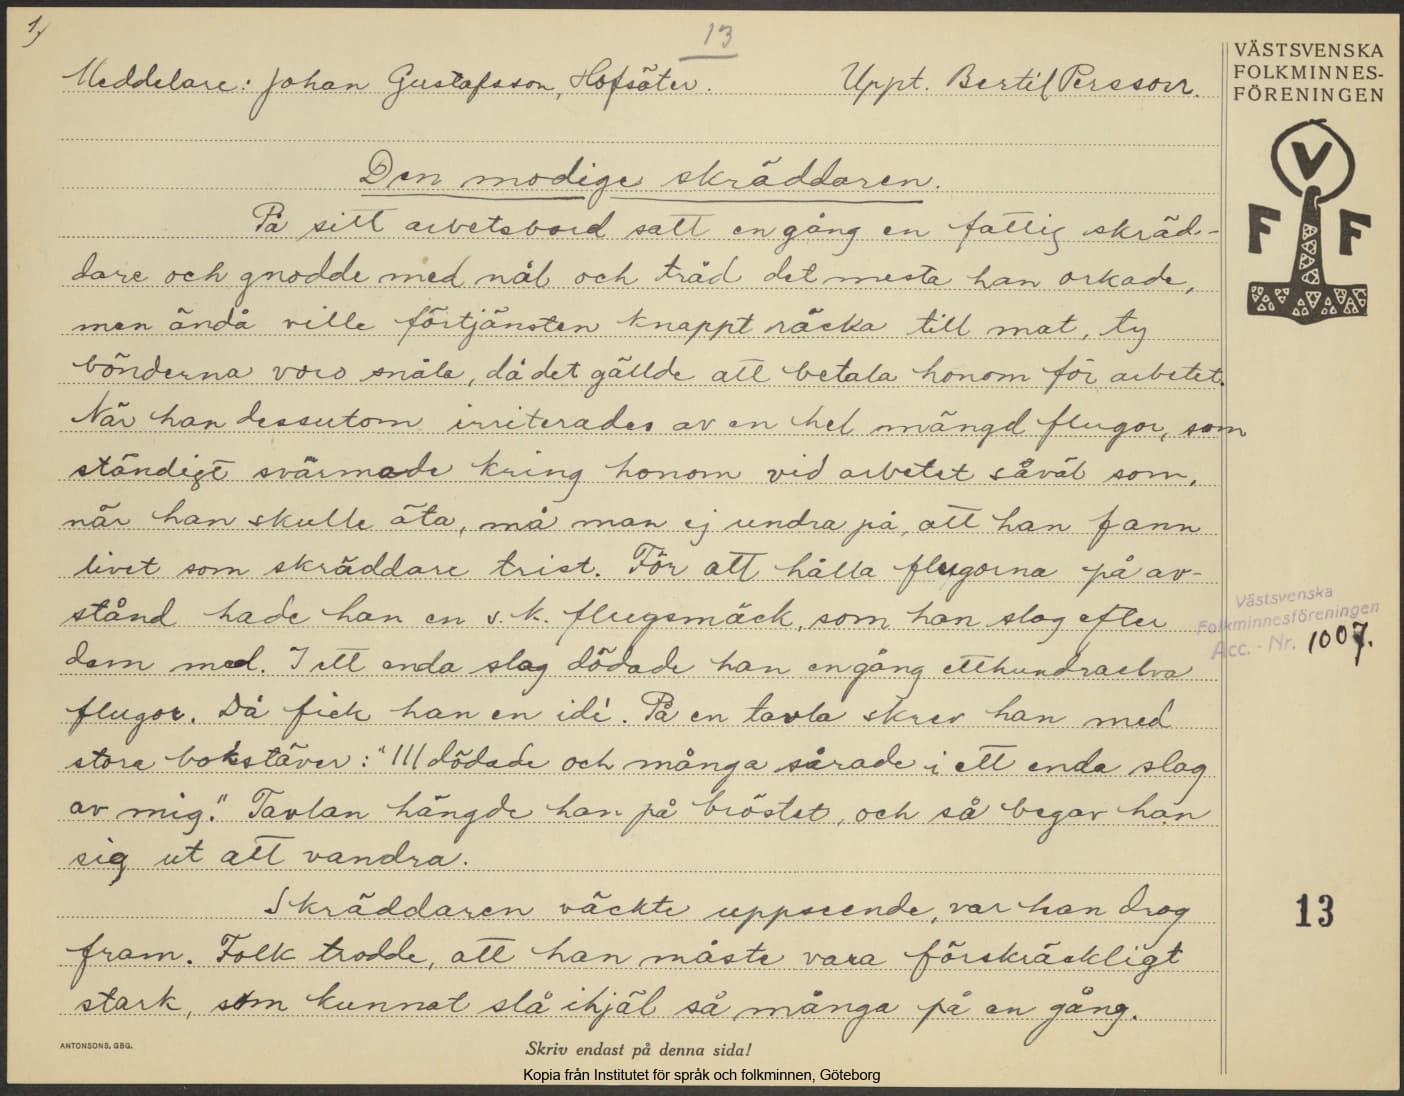 1)
13
Meddelare: Johan Gustafsson, Hofsäter. Uppt. Bertil Persson.
Den modige skräddaren.
På sitt arbetsbord satt en gång en fattig skräd-
dare och gnodde med nål och tråd det mesta han orkade,
men ändå ville förtjänsten knappt räcka till mat, ty
bönderna voro snåla, då det gällde att betala honom för arbetet.
När han dessutom irriterades av en hel mängd flugor, som
ständigt svärmade kring honom vid arbetet såväl som,
när han skulle äta, må man ej undra på, att han fann
livet som skräddare trist. För att hålla flugorna på av-
stånd hade han en s.k. flugsmäck, som han slog efter
dem med. I ett enda slag dödade han en gång etthundraelva
flugor. Då fick han en idé. På en tavla skrev han med
stora bokstäver: "111 dödade och många sårade i ett enda slag
av mig." Tavlan hängde han på bröstet, och så begav han
sig ut att vandra.
Skräddaren väckte uppseende, var han drog
fram. Folk trodde, att han måste vara förskräckligt
stark, som kunnat slå ihjäl så många på en gång.
ANTONSONS, GBG.
Skriv endast på denna sida!
Kopia från Institutet för språk och folkminnen, Göteborg
VÄSTSVENSKA
FOLKMINNES-
FÖRENINGEN
V
F F
Västsvenska
Folkminnesföreningen
Acc. - Nr. 1007.
13